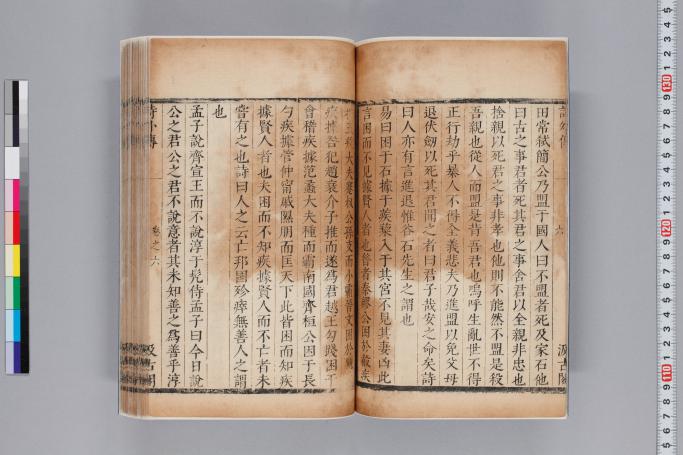 田常弑簡公乃盟于國人曰不盟者死及家石他
曰古之事君者死其君之事舍君以全親非忠也
捨親以死君之事非孝也他則不能然不盟是殺
吾親也從人而盟是背吾君也嗚呼生亂世不得
正行劫乎暴人不得全義悲夫乃進盟以免父母
退伏劒以死其君聞之者曰君子哉安之命矣詩
曰人亦有言進退惟谷石先生之謂也
易曰困于石據于蒺蔾入于其宮不見其妻凶此
言困而不見據賢人者也昔者秦繆公困於殽疾
據五羖大夫蹇叔公孫支而小霸晉文困於驪氏
疾據咎犯趙衰介子推而遂爲君越王勾踐困于
會稽疾據范蠡大夫種而霸南國齊桓公困于長
勺疾據管仲甯戚隰朋而匡天下此皆困而知疾
據賢人者也夫困而不知疾據賢人而不亡者未
嘗有之也詩曰人之云亡邦國殄瘁無善人之謂
也
孟子說齊宣王而不說淳于髡侍孟子曰今日說
公之君公之君不說意者其未知善之爲善乎淳
詩外傳
卷之六
汲古閣
六
汲古閣